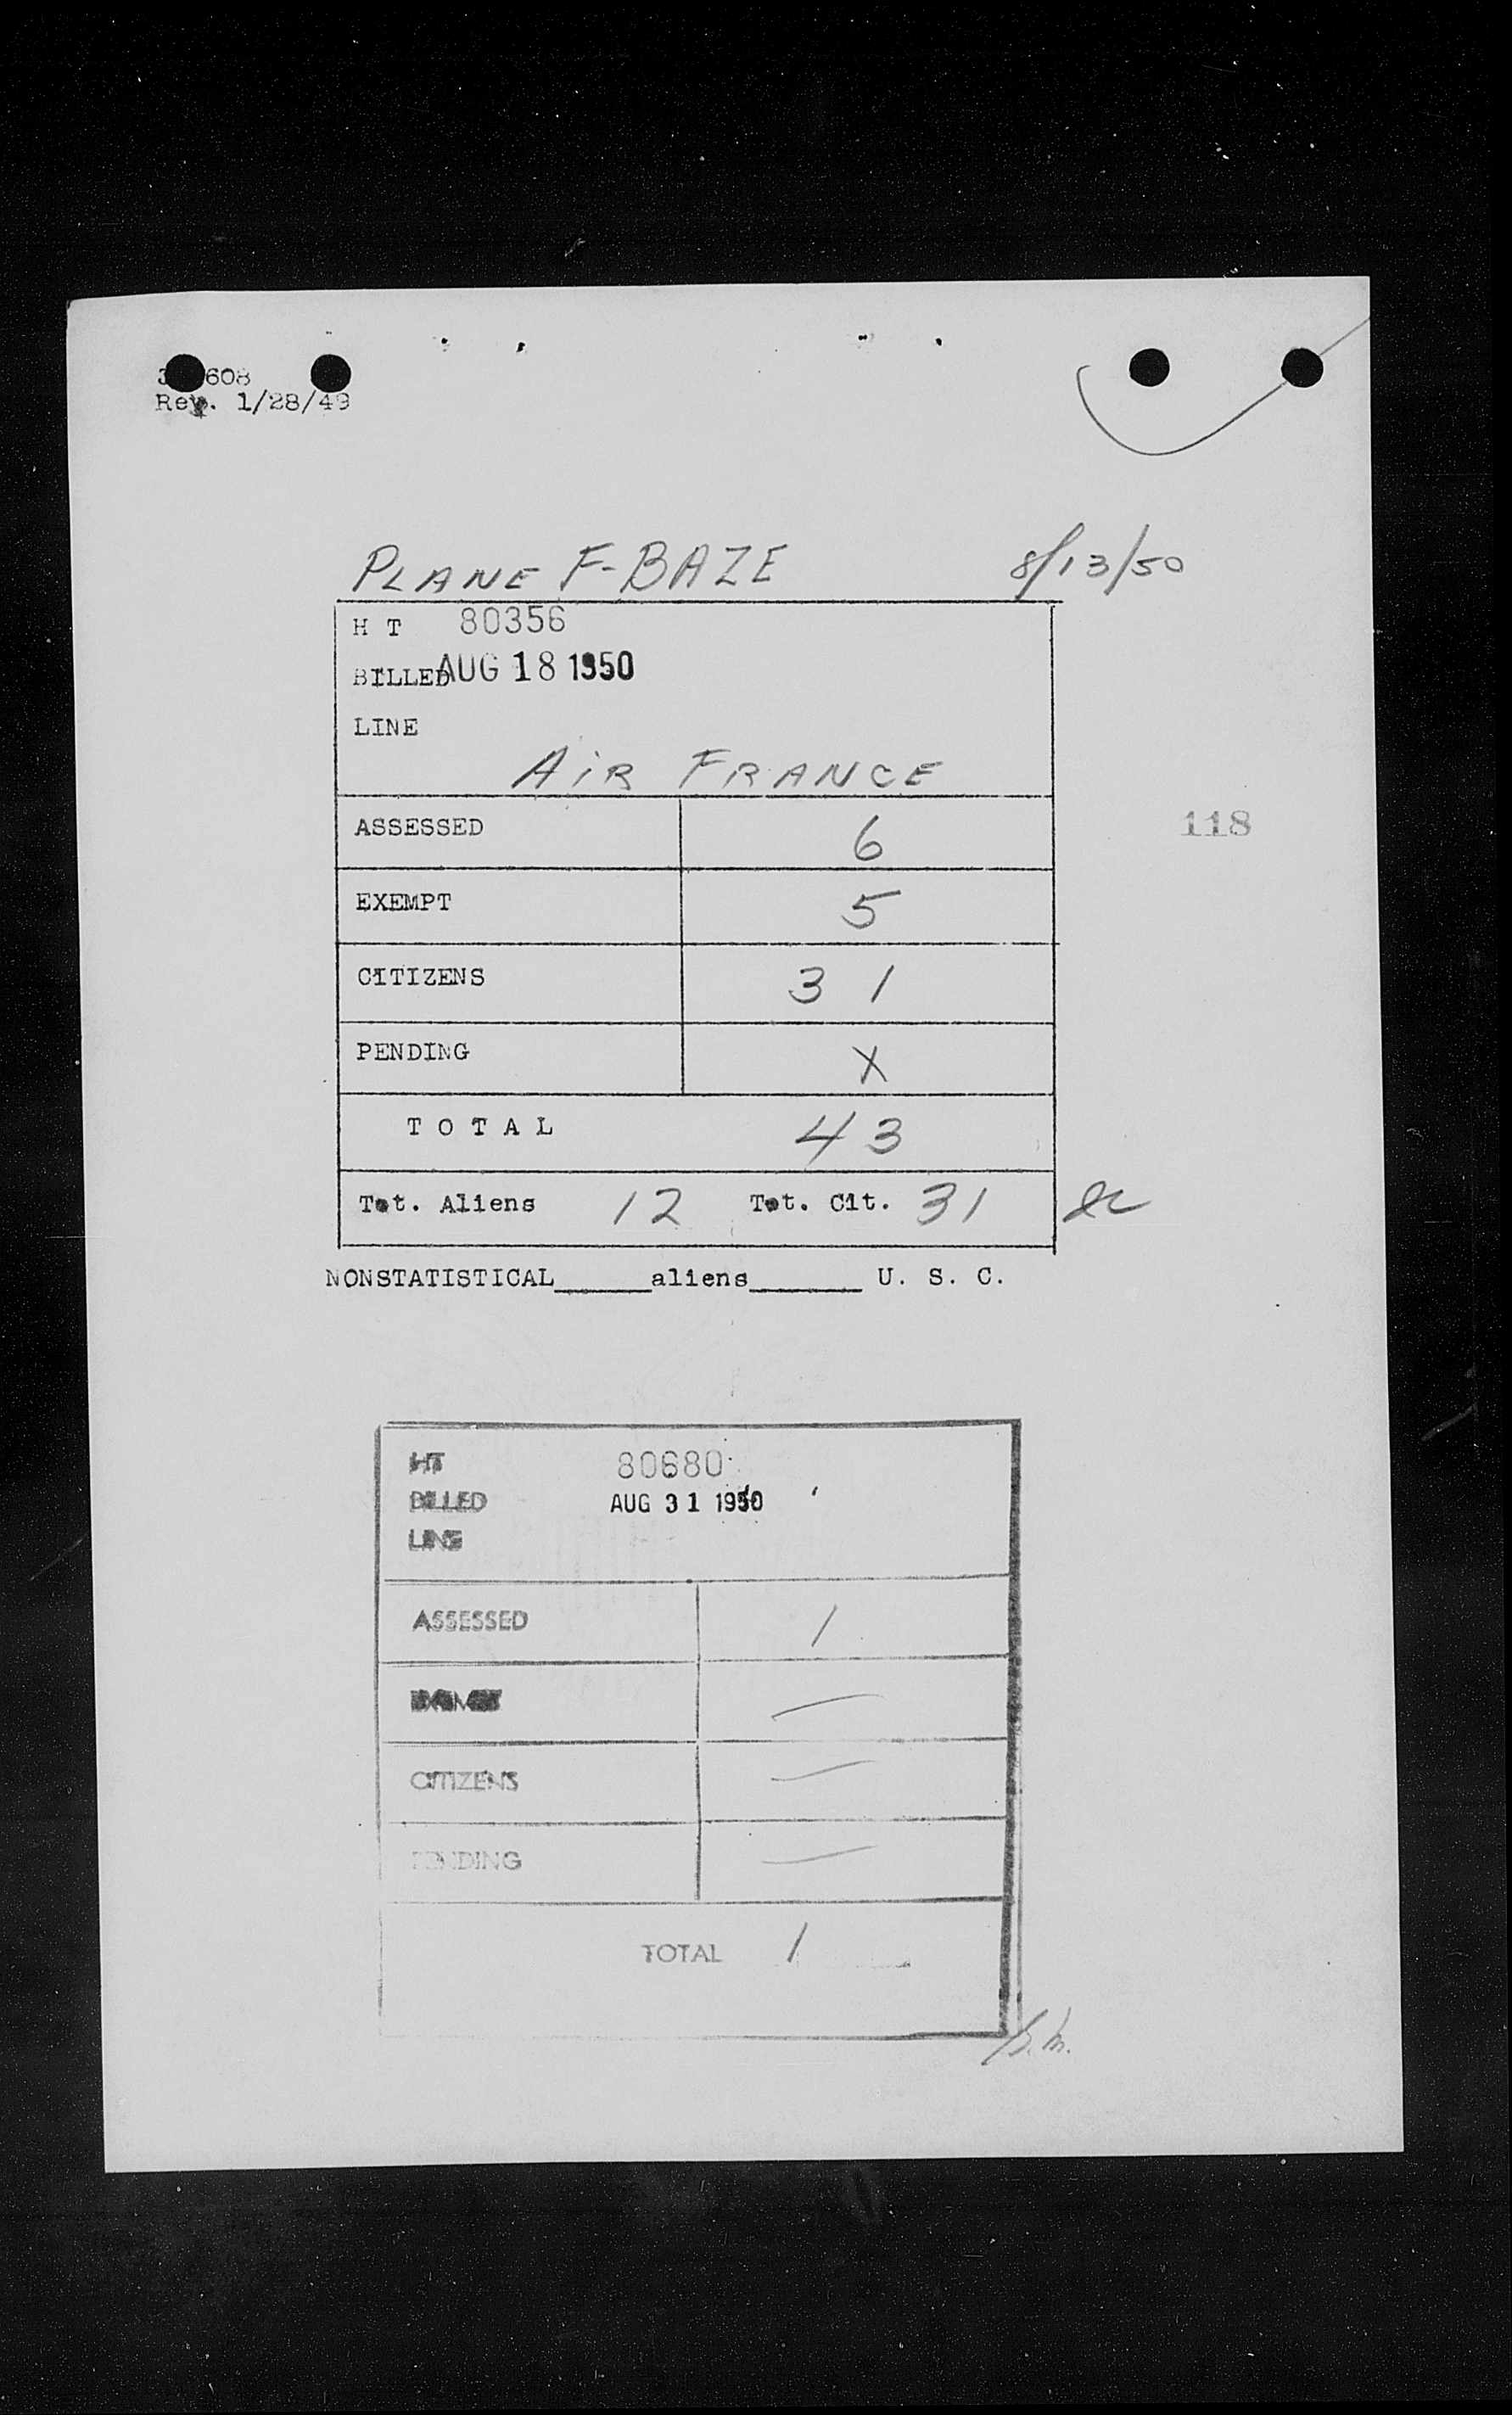 608
Rev. 1/28/49
PLANE F-BAZE 8/13/50
H T 80356
BILLED AUG 18 1950
LINE
AIR FRANCE
ASSESSED 6
118
EXEMPT 5
CITIZENS 31
PENDING X
TOTAL 43
Tot. Aliens 12 Tot. Cit. 31
NONSTATISTICAL_____aliens______ U. S. C.
HT 80680
BILLED AUG 31 1950
LINE
ASSESSED 1
EXEMPT —
CITIZENS —
PENDING —
TOTAL 1